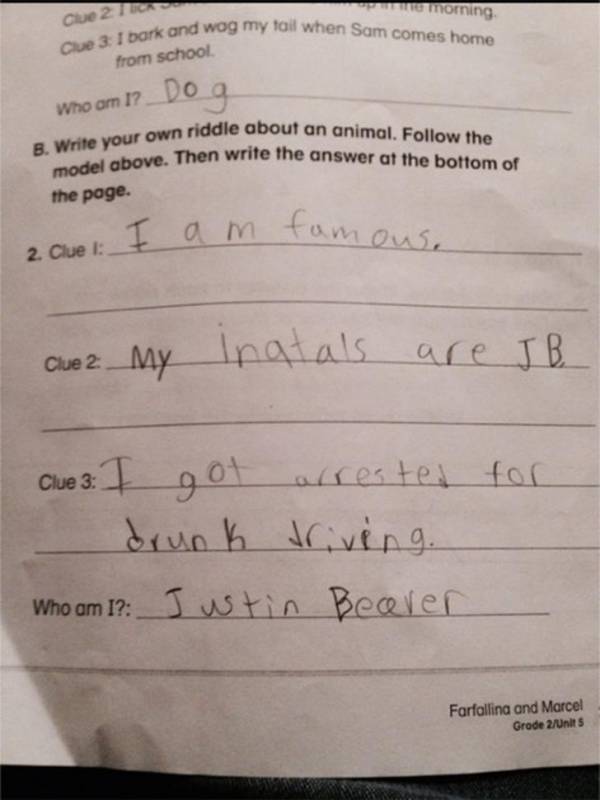 Clue 2: I lick
up in the morning.
Clue 3: I bark and wag my tail when Sam comes home
from school.
Who am I? Dog
B. Write your own riddle about an animal. Follow the
model above. Then write the answer at the bottom of
the page.
2. Clue 1: I am famous.
Clue 2: My inatals are JB.
Clue 3: I got arrested for
drunk driving.
Who am I?: Justin Beaver
Farfallina and Marcel
Grade 2/Unit 5